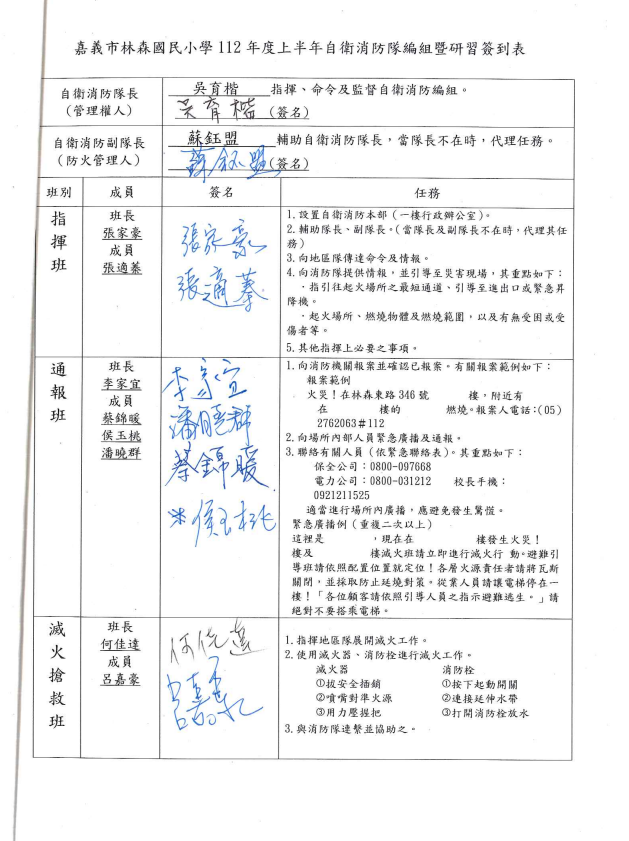 嘉義市林森國民小學 112 年度上半年自衛消防隊編組暨研習簽到表
自衛消防隊長
(管理權人)
吳育楷 指揮、命令及監督自衛消防編組。
吳育楷 (簽名)
自衛消防副隊長
(防火管理人)
蘇鈺盟 輔助自衛消防隊長，當隊長不在時，代理任務。
蘇鈺盟 (簽名)
班別 成員 簽名 任務
指揮班
班長
張家豪
成員
張適蓁
張家豪
張適蓁
1.設置自衛消防本部（一樓行政辦公室）。
2.輔助隊長、副隊長。（當隊長及副隊長不在時，代理其任
務）
3.向地區隊傳達命令及情報。
4.向消防隊提供情報，並引導至災害現場，其重點如下：
．指引往起火場所之最短通道、引導至進出口或緊急昇
降機。
．起火場所、燃燒物體及燃燒範圍，以及有無受困或受
傷者等。
5.其他指揮上必要之事項。
通報班
班長
李家宜
成員
蔡錦暖
侯玉桃
潘曉群
李家宜
潘曉群
蔡錦暖
侯玉桃
1.向消防機關報案並確認已報案。有關報案範例如下：
報案範例
火災！在林森東路 346 號 樓，附近有
在 樓的 燃燒。報案人電話：(05)
2762063#112
2.向場所內部人員緊急廣播及通報。
3.聯絡有關人員（依緊急聯絡表）。其重點如下：
保全公司：0800-097668
電力公司：0800-031212 校長手機：
0921211525
適當進行場所內廣播，應避免發生驚慌。
緊急廣播例（重複二次以上）
這裡是 ，現在在 樓發生火災！
樓及 樓滅火班請立即進行滅火行 動。避難引
導班請依照配置位置就定位！各層火源責任者請將瓦斯
關閉，並採取防止延燒對策。從業人員請讓電梯停在一
樓！「各位顧客請依照引導人員之指示避難逃生。」請
絕對不要搭乘電梯。
滅火搶救班
班長
何佳達
成員
呂嘉豪
何佳達
呂嘉豪
1.指揮地區隊展開滅火工作。
2.使用滅火器、消防栓進行滅火工作。
滅火器 消防栓
①拔安全插銷 ①按下起動開關
②噴嘴對準火源 ②連接延伸水帶
③用力壓握把 ③打開消防栓放水
3.與消防隊連繫並協助之。